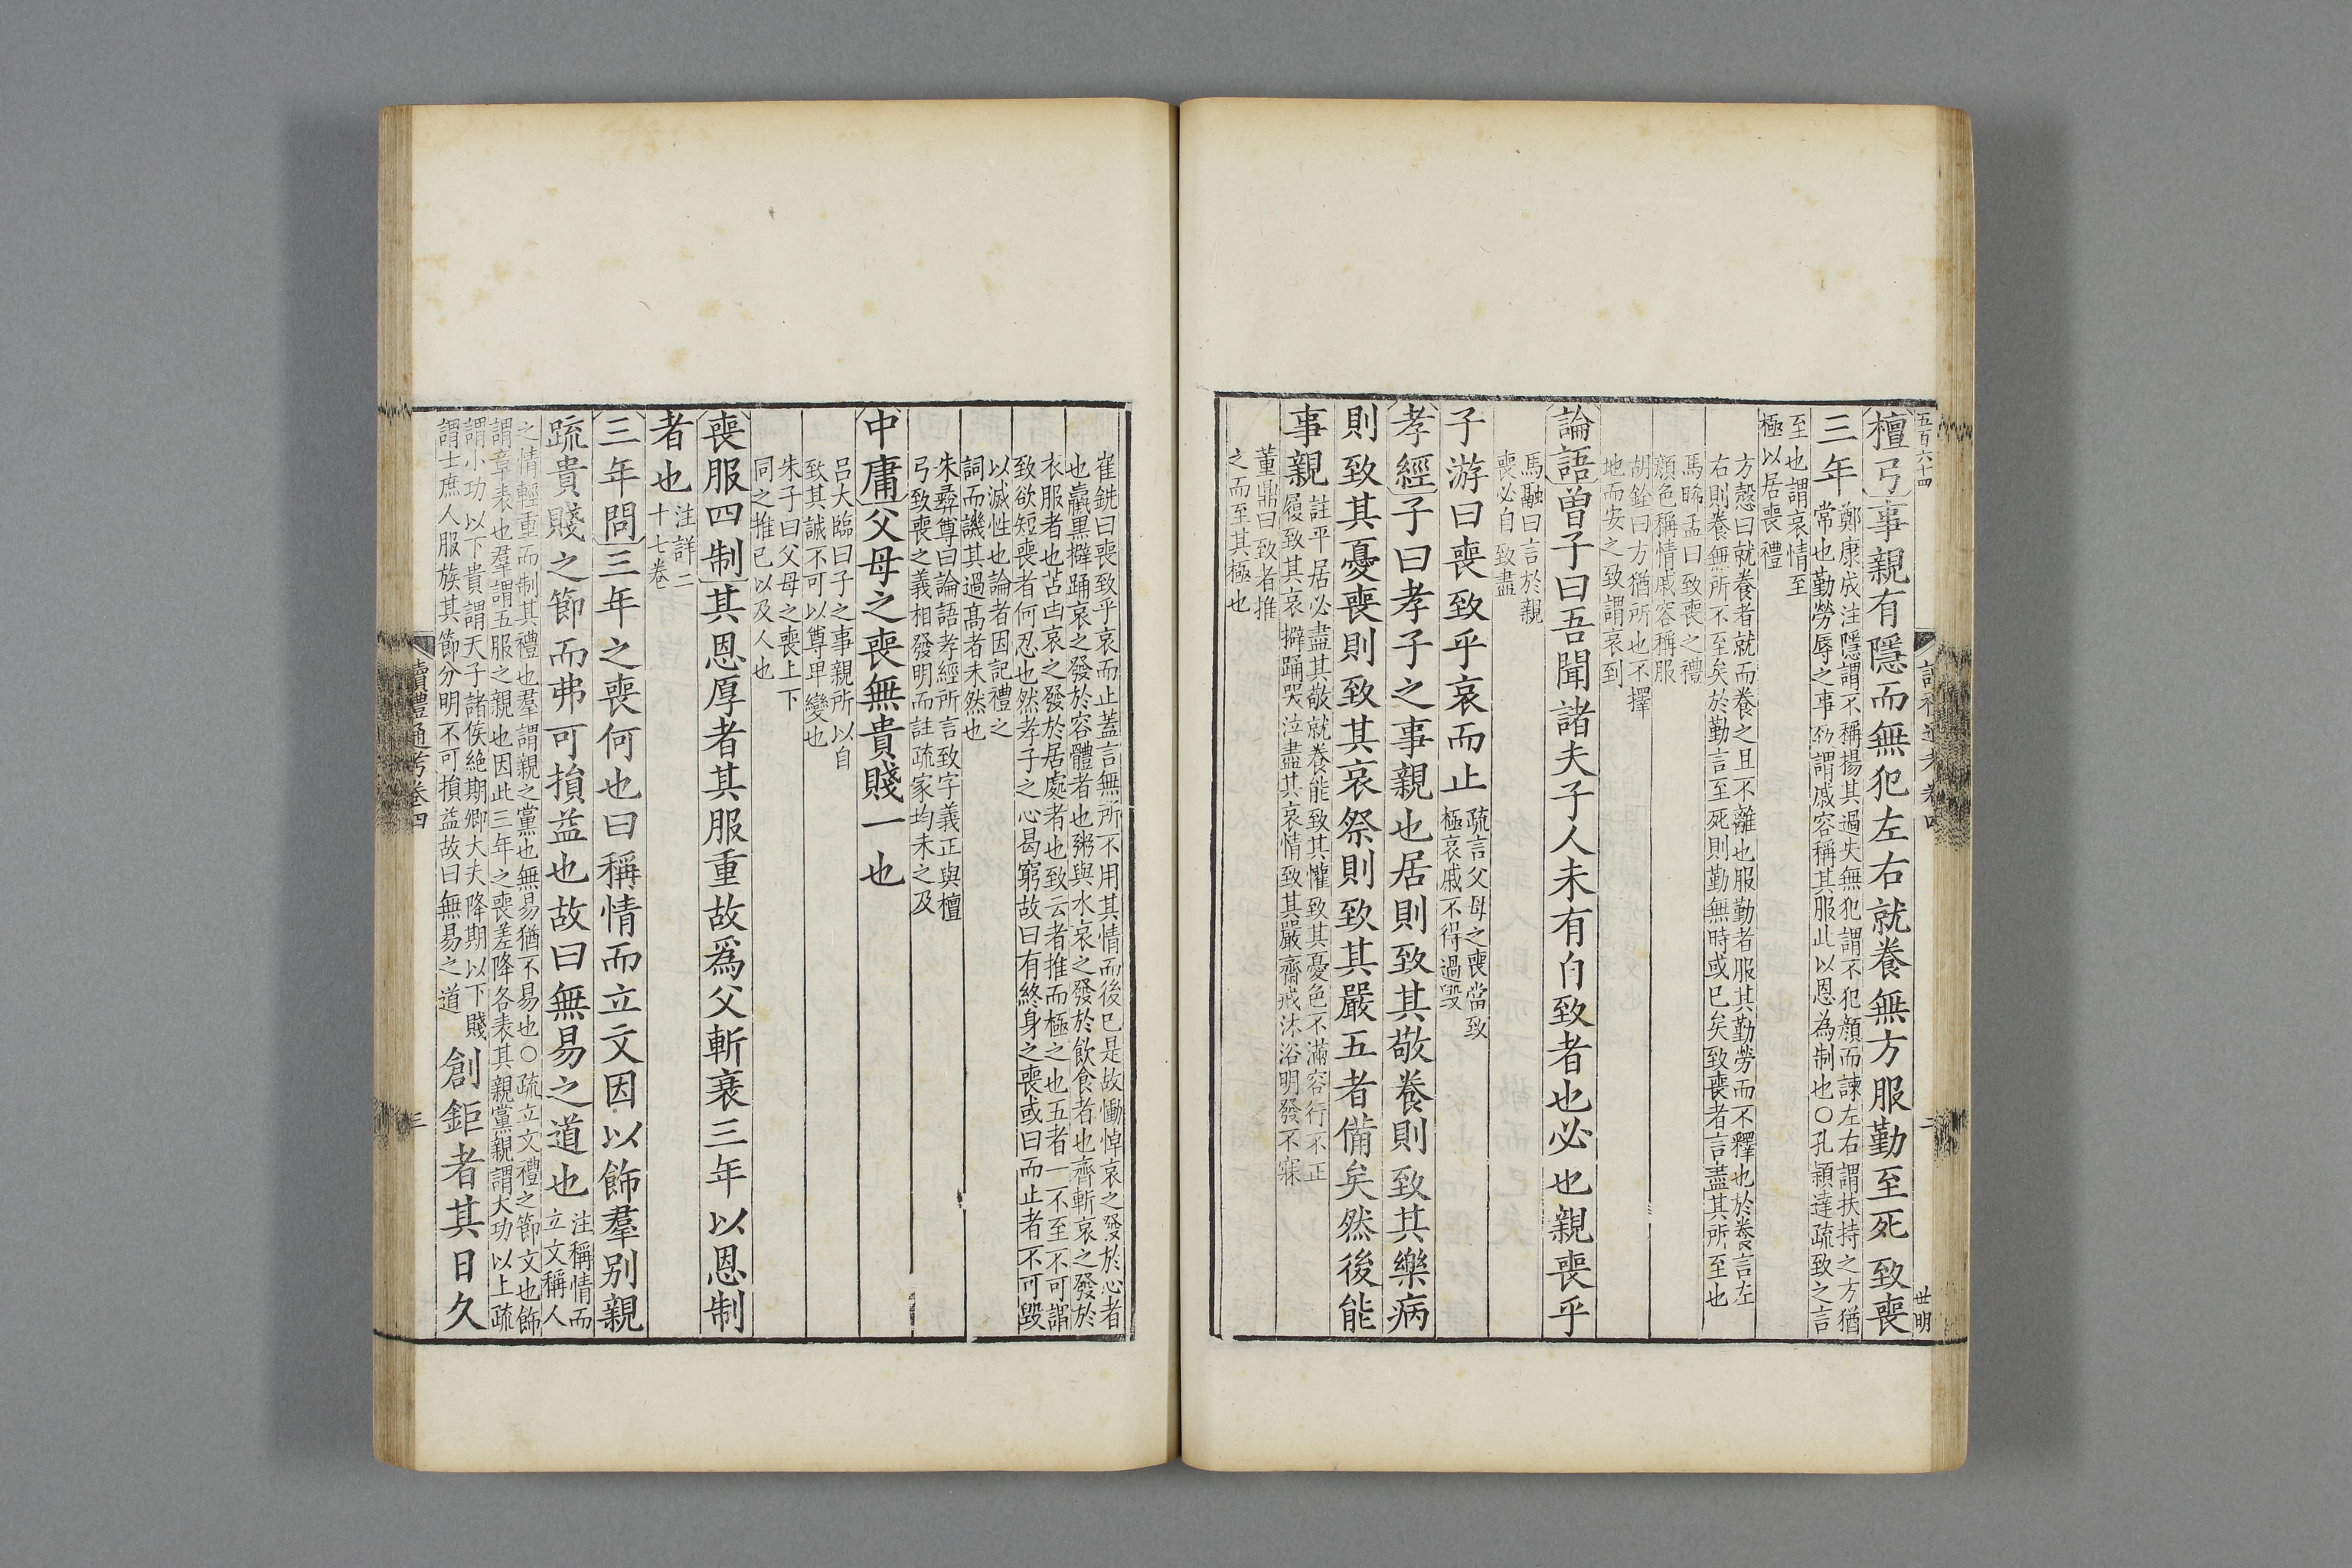 五百六十四
讀禮通考卷四
二
世明
檀弓事親有隱而無犯左右就養無方服勤至死致喪
三年
鄭康成注隱謂不稱揚其過失無犯謂不犯顏而諫左右謂扶持之方猶
常也勤勞辱之事致謂戚容稱其服此以恩為制也○孔穎達疏致之言
至也謂哀情至
極以居喪禮
方慤曰就養者就而養之且不離也服勤者服其勤勞而不釋也於養言左
右則養無所不至矣於勤言至死則勤無時或已矣致喪者言盡其所至也
馬晞孟曰致喪之禮
顏色稱情戚容稱服
胡銓曰方猶所也不擇
地而安之致謂哀到
論語曾子曰吾聞諸夫子人未有自致者也必也親喪乎
馬融曰言於親
喪必自致盡
子游曰喪致乎哀而止
疏言父母之喪當致
極哀戚不得過毀
孝經子曰孝子之事親也居則致其敬養則致其樂病
則致其憂喪則致其哀祭則致其嚴五者備矣然後能
事親
註平居必盡其敬就養能致其懽致其憂色不滿容行不正
履致其哀擗踊哭泣盡其哀情致其嚴齋戒沐浴明發不寐
董鼎曰致者推
之而至其極也
崔銑曰喪致乎哀而止蓋言無所不用其情而後已是故慟悼哀之發於心者
也羸黑擗踊哀之發於容體者也粥與水哀之發於飲食者也齊斬哀之發於
衣服者也苫甴哀之發於居處者也致云者推而極之也五者一不至不可謂
致欲短喪者何忍也然孝子之心曷窮故曰有終身之喪或曰而止者不可毀
以滅性也論者因記禮之
詞而譏其過高者未然也
朱彝尊曰論語孝經所言致字義正與檀
弓致喪之義相發明而註疏家均未之及
中庸父母之喪無貴賤一也
呂大臨曰子之事親所以自
致其誠不可以尊卑變也
朱子曰父母之喪上下
同之推己以及人也
喪服四制其恩厚者其服重故為父斬衰三年以恩制
者也
注詳二
十七卷
三年問三年之喪何也曰稱情而立文因以飾羣别親
疏貴賤之節而弗可損益也故曰無易之道也
注稱情而
立文稱人
之情輕重而制其禮也羣謂親之黨也無易猶不易也○疏立文禮之節文也飾
謂章表也羣謂五服之親也因此三年之喪差降各表其親黨親謂大功以上疏
謂小功以下貴謂天子諸侯絕期卿大夫降期以下賤
謂士庶人服族其節分明不可損益故曰無易之道
創鉅者其日久
讀禮通考卷四
三